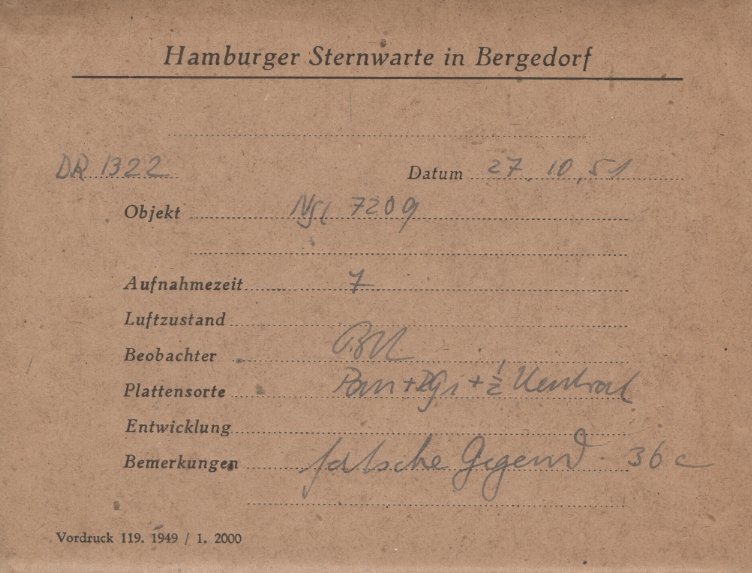 Hamburger Sternwarte in Bergedorf
DR 1322 Datum 27.10.51
Objekt Ngc 7209
Aufnahmezeit 7
Luftzustand
Beobachter
Plattensorte Pan + + ½ Neutral
Entwicklung
Bemerkungen falsche Gegend 36 c
Vordruck 119. 1949 / 1. 2000